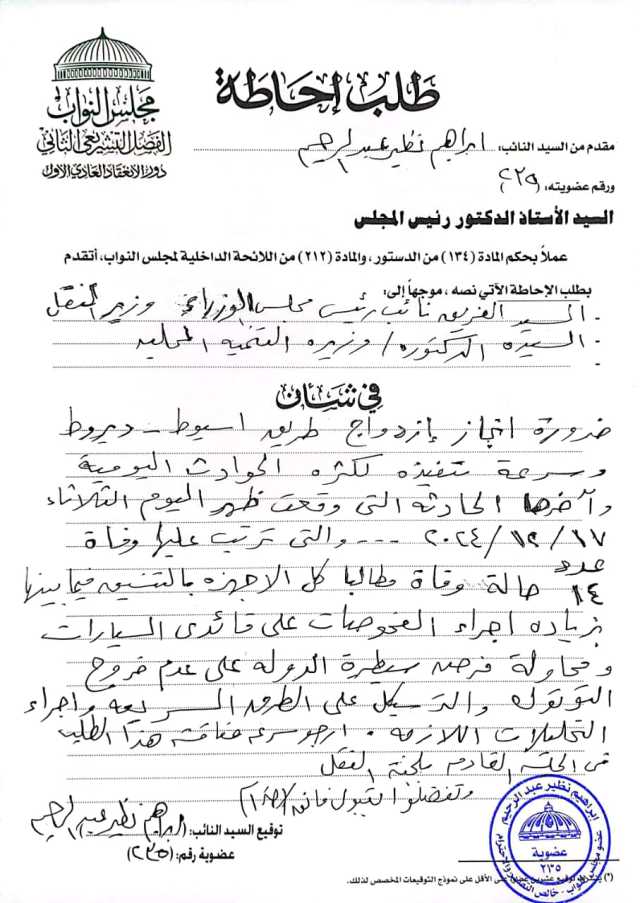 مجلس النواب
الفصل التشريعي الثاني
دور الانعقاد العادي الأول
طلب إحاطة
مقدم من السيد النائب: ابراهيم نظير عبدالرحيم
ورقم عضويته: (٢٣٥)
السيد الأستاذ الدكتور رئيس المجلس
عملاً بحكم المادة (١٣٤) من الدستور، والمادة (٢١٢) من اللائحة الداخلية لمجلس النواب، أتقدم
بطلب الإحاطة الآتي نصه، موجهاً إلى:
- السيد الفريق نائب رئيس مجلس الوزراء وزير النقل
- السيده الدكتوره / وزيره التنميه المحليه
في شأن
ضرورة انجاز بازدواج طريق اسيوط - ديروط
وسرعة تنفيذه لكثره الحوادث اليومية
وآخرها الحادثه التى وقعت ظهر اليوم الثلاثاء
١٧/١٢/٢٠٢٤ --- والتى ترتب عليها وفاة
عدد ١٤ حالة وفاة مطالبا كل الاجهزه بالتنسيق فيما بينها
بزياده اجراء الفحوصات على قائدى السيارات
ومحاولة فرض سيطرة الدوله على عدم خروج
التوتوك والترسيكل على الطرق السريعه واجراء
التحليلات اللازمه . ارجو سرعه مناقشة هذا الطلب
فى الجلسه القادمه بلجنة النقل
وتفضلوا بقبول فائق
توقيع السيد النائب: ابراهيم نظير عبدالرحيم
عضوية رقم: (٢٣٥)
ابراهيم نظير عبد الرحيم
عضوية
٢٣٥
عضو مجلس النواب - خالص التقدير والاحترام
(*) توقيع عشرين عضواً على الأقل على نموذج التوقيعات المخصص لذلك.